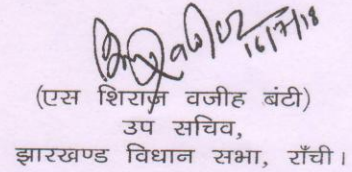 16/7/18
(एस शिराज वजीह बंटी)
उप सचिव,
झारखण्ड विधान सभा, राँची।